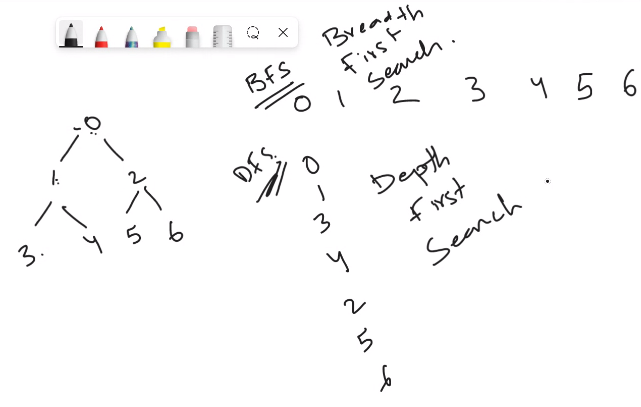 Breadth
First
Search.
BFS
0 1 2 3 4 5 6
0
1 2
3. 4 5 6
DFS.
0
1
3
4
2
5
6
Depth
First
Search